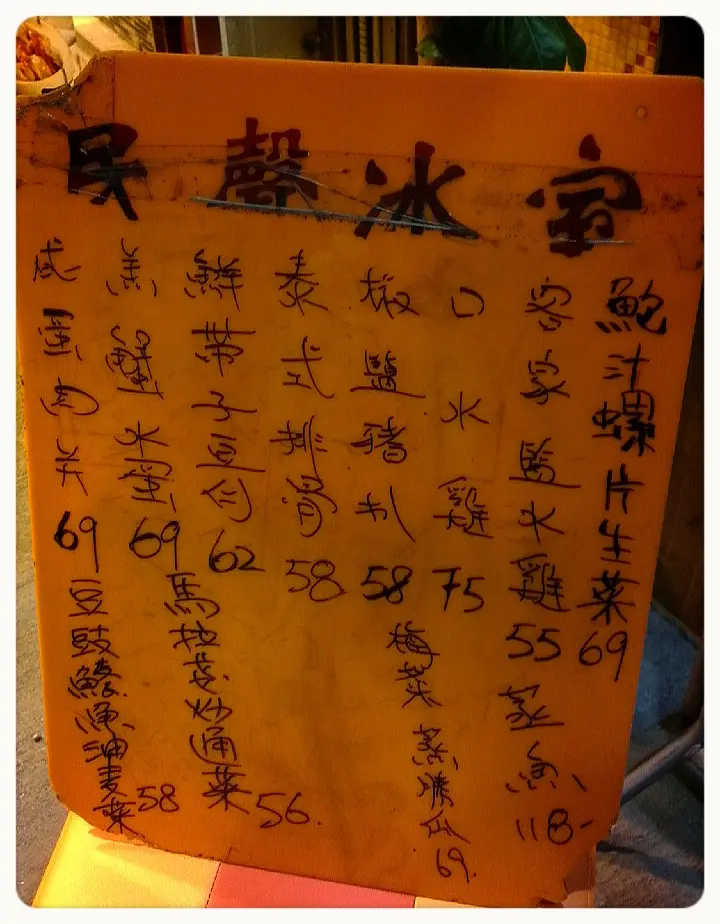 民聲冰室
鮑汁螺片生菜 69
客家监水雞 55
蒸魚 118-
口水雞 75
椒鹽豬扒 58
梅菜蒸勝瓜 69.
泰式排骨 58
鮮帶子豆付 62
馬拉盏炒通菜 56.
羔蟹水蛋 69
咸蛋肉 69
豆豉鯪漁油麦菜 58